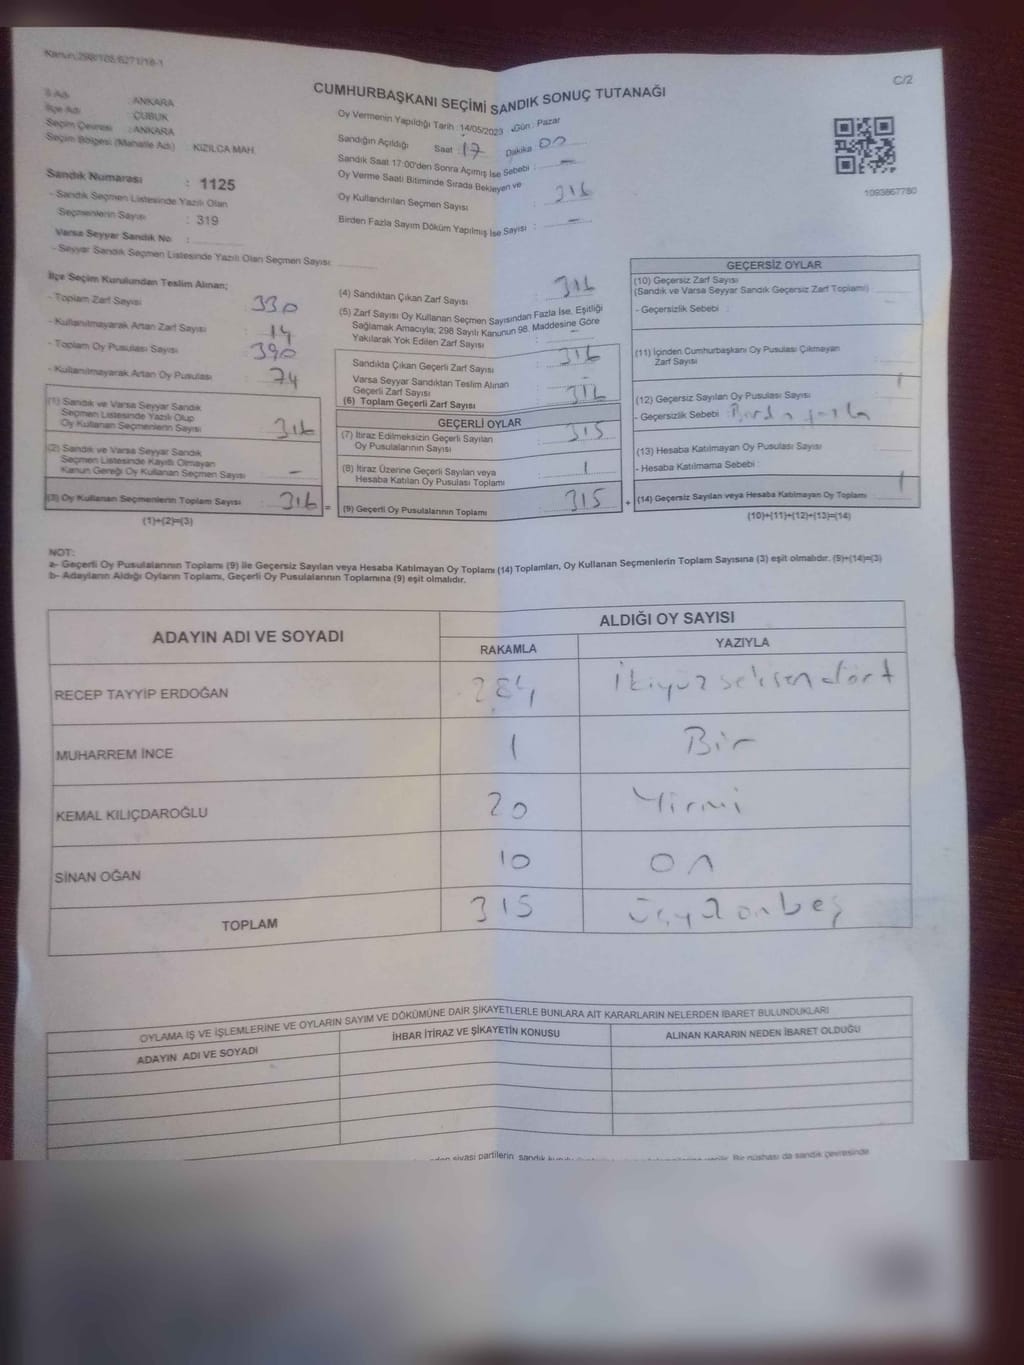 Kanun:298/105/6271/18-1
C/2
CUMHURBAŞKANI SEÇİMİ SANDIK SONUÇ TUTANAĞI
İl Adı : ANKARA
İlçe Adı : ÇUBUK
Seçim Çevresi : ANKARA
Seçim Bölgesi (Mahalle Adı) : KIZILCA MAH.
Sandık Numarası : 1125
- Sandık Seçmen Listesinde Yazılı Olan
Seçmenlerin Sayısı : 319
Varsa Seyyar Sandık No :
- Seyyar Sandık Seçmen Listesinde Yazılı Olan Seçmen Sayısı:
Oy Vermenin Yapıldığı Tarih : 14/05/2023 Gün : Pazar
Sandığın Açıldığı Saat : 17 Dakika 00
Sandık Saat 17:00'den Sonra Açılmış İse Sebebi : -
Oy Verme Saati Bitiminde Sırada Bekleyen ve
Oy Kullandırılan Seçmen Sayısı : 316
Birden Fazla Sayım Döküm Yapılmış İse Sayısı : -
1093867780
İlçe Seçim Kurulundan Teslim Alınan;
- Toplam Zarf Sayısı : 330
- Kullanılmayarak Artan Zarf Sayısı : 14
- Toplam Oy Pusulası Sayısı : 390
- Kullanılmayarak Artan Oy Pusulası : 74
(1) Sandık ve Varsa Seyyar Sandık
Seçmen Listesinde Yazılı Olup
Oy Kullanan Seçmenlerin Sayısı : 316
(2) Sandık ve Varsa Seyyar Sandık
Seçmen Listesinde Kayıtlı Olmayan
Kanun Gereği Oy Kullanan Seçmen Sayısı : -
(3) Oy Kullanan Seçmenlerin Toplam Sayısı : 316 =
(1)+(2)=(3)
(4) Sandıktan Çıkan Zarf Sayısı : 316
(5) Zarf Sayısı Oy Kullanan Seçmen Sayısından Fazla İse, Eşitliği
Sağlamak Amacıyla; 298 Sayılı Kanunun 98. Maddesine Göre
Yakılarak Yok Edilen Zarf Sayısı :
Sandıkta Çıkan Geçerli Zarf Sayısı : 316
Varsa Seyyar Sandıktan Teslim Alınan
Geçerli Zarf Sayısı :
(6) Toplam Geçerli Zarf Sayısı : 316
GEÇERLİ OYLAR
(7) İtiraz Edilmeksizin Geçerli Sayılan
Oy Pusulalarının Sayısı : 315
(8) İtiraz Üzerine Geçerli Sayılan veya
Hesaba Katılan Oy Pusulası Toplamı : 1
(9) Geçerli Oy Pusulalarının Toplamı : 315 +
GEÇERSİZ OYLAR
(10) Geçersiz Zarf Sayısı
(Sandık ve Varsa Seyyar Sandık Geçersiz Zarf Toplamı)
- Geçersizlik Sebebi :
(11) İçinden Cumhurbaşkanı Oy Pusulası Çıkmayan
Zarf Sayısı
(12) Geçersiz Sayılan Oy Pusulası Sayısı : 1
- Geçersizlik Sebebi :
(13) Hesaba Katılmayan Oy Pusulası Sayısı :
- Hesaba Katılmama Sebebi :
(14) Geçersiz Sayılan veya Hesaba Katılmayan Oy Toplamı : 1
(10)+(11)+(12)+(13)=(14)
NOT:
a- Geçerli Oy Pusulalarının Toplamı (9) ile Geçersiz Sayılan veya Hesaba Katılmayan Oy Toplamı (14) Toplamları, Oy Kullanan Seçmenlerin Toplam Sayısına (3) eşit olmalıdır. (9)+(14)=(3)
b- Adayların Aldığı Oyların Toplamı, Geçerli Oy Pusulalarının Toplamına (9) eşit olmalıdır.
ADAYIN ADI VE SOYADI
ALDIĞI OY SAYISI
RAKAMLA YAZIYLA
RECEP TAYYİP ERDOĞAN 284 İkiyüzseksendört
MUHARREM İNCE 1 Bir
KEMAL KILIÇDAROĞLU 20 Yirmi
SİNAN OĞAN 10 On
TOPLAM 315 Üçyüzonbeş
OYLAMA İŞ VE İŞLEMLERİNE VE OYLARIN SAYIM VE DÖKÜMÜNE DAİR ŞİKAYETLERLE BUNLARA AİT KARARLARIN NELERDEN İBARET BULUNDUKLARI
ADAYIN ADI VE SOYADI İHBAR İTİRAZ VE ŞİKAYETİN KONUSU ALINAN KARARIN NEDEN İBARET OLDUĞU
siyasi partilerin sandık Bir nüshası da sandık çevresinde